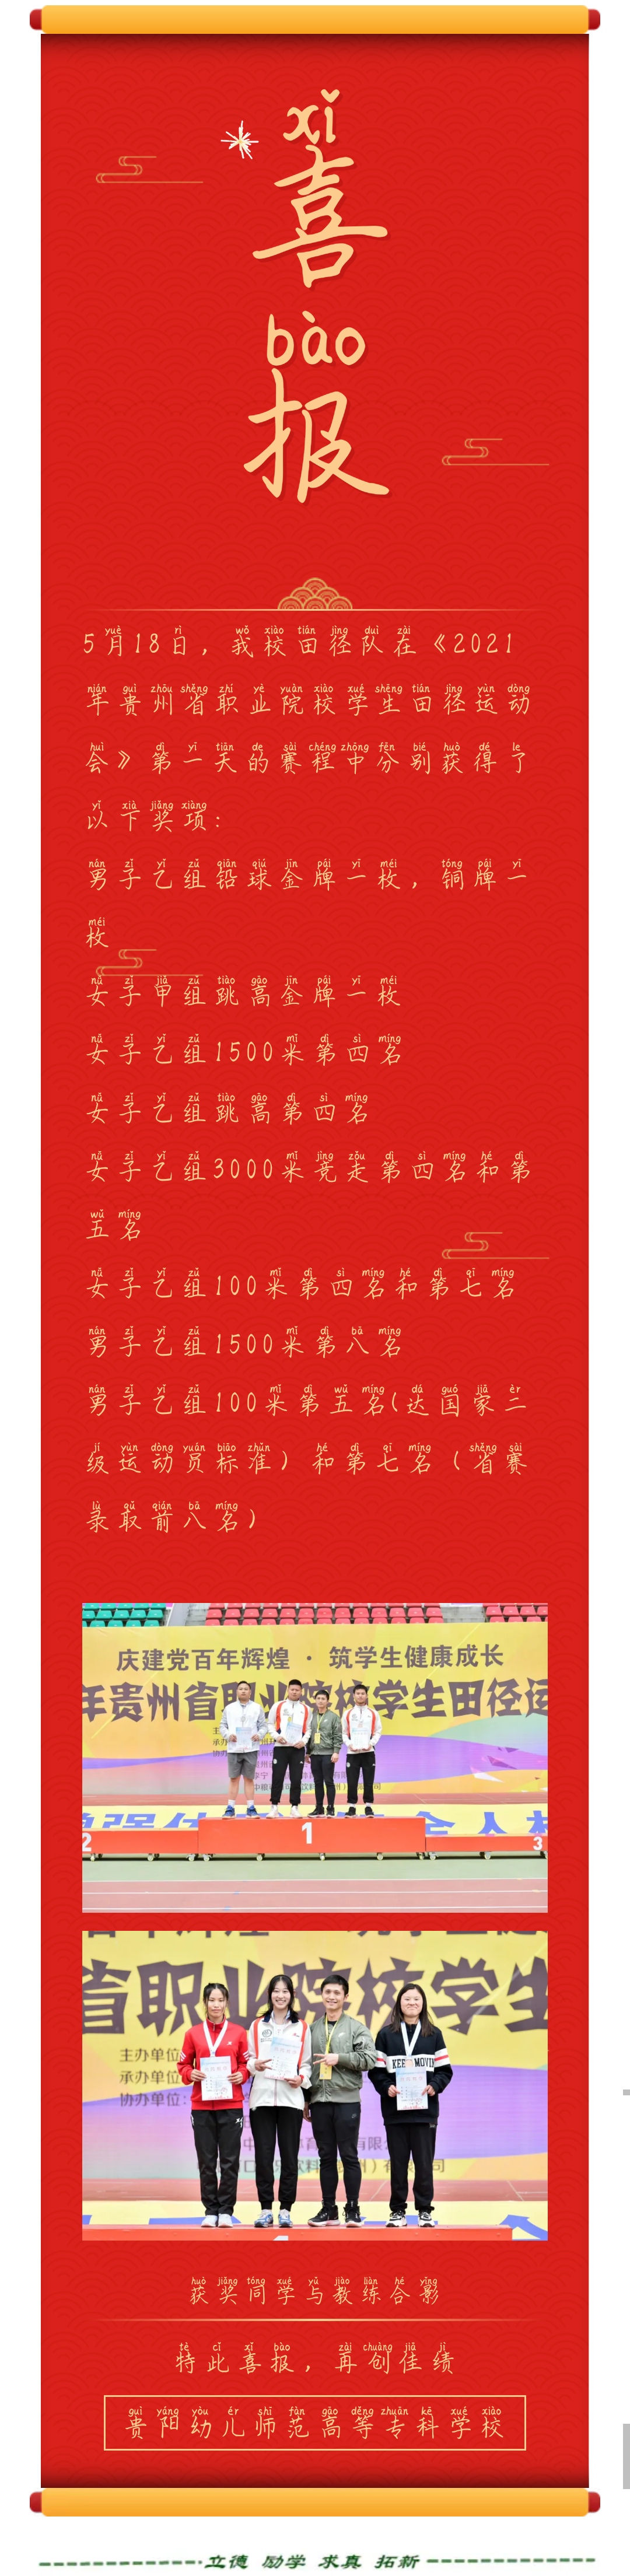 xǐ
喜
bào
报
5月18日，我校田径队在《2021
年贵州省职业院校学生田径运动
会》第一天的赛程中分别获得了
以下奖项：
男子乙组铅球金牌一枚，铜牌一
枚
女子甲组跳高金牌一枚
女子乙组1500米第四名
女子乙组跳高第四名
女子乙组3000米竞走第四名和第
五名
女子乙组100米第四名和第七名
男子乙组1500米第八名
男子乙组100米第五名(达国家二
级运动员标准）和第七名（省赛
录取前八名）
庆建党百年辉煌·筑学生健康成长
年贵州省职业院校学生田径运
2
1
3
省职业院校学生
主办单位
承办单位
协办单位:
KEEP MOVIN
获奖同学与教练合影
特此喜报，再创佳绩
贵阳幼儿师范高等专科学校
立德 励学 求真 拓新